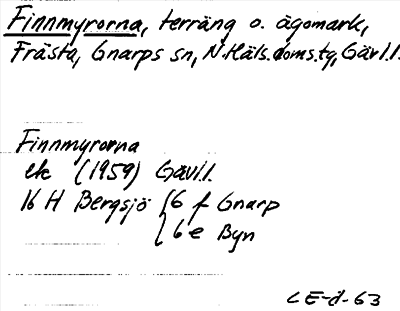 Finnmyrorna, terräng o. ägomark,
Frästa, Gnarps sn, N.Häls.doms.tg, Gävl.l.
Finnmyrorna
ek (1959) Gävl.l.
16 H Bergsjö { 6 f Gnarp
6 e Byn
CE-d-63